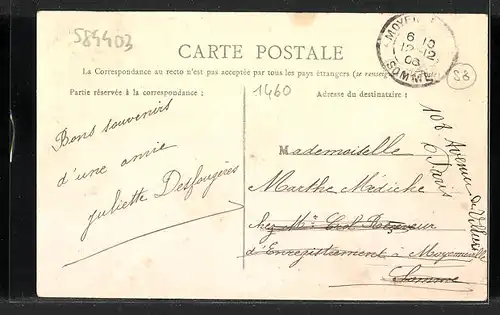 584403
CARTE POSTALE
La Correspondance au recto n'est pas acceptée par tous les pays étrangers (se renseigner
Partie réservée à la correspondance :
Adresse du destinataire :
1460
S8
MOYEN
6 10
12-12
08
SOMME
Bons souvenirs
d'une amie
Juliette Desfougères
Mademoiselle
Marthe Médiche
chez Mr Crol Receveur
d'Enregistrement à Moyenneville
Somme
108 Avenue de Villiers
Paris